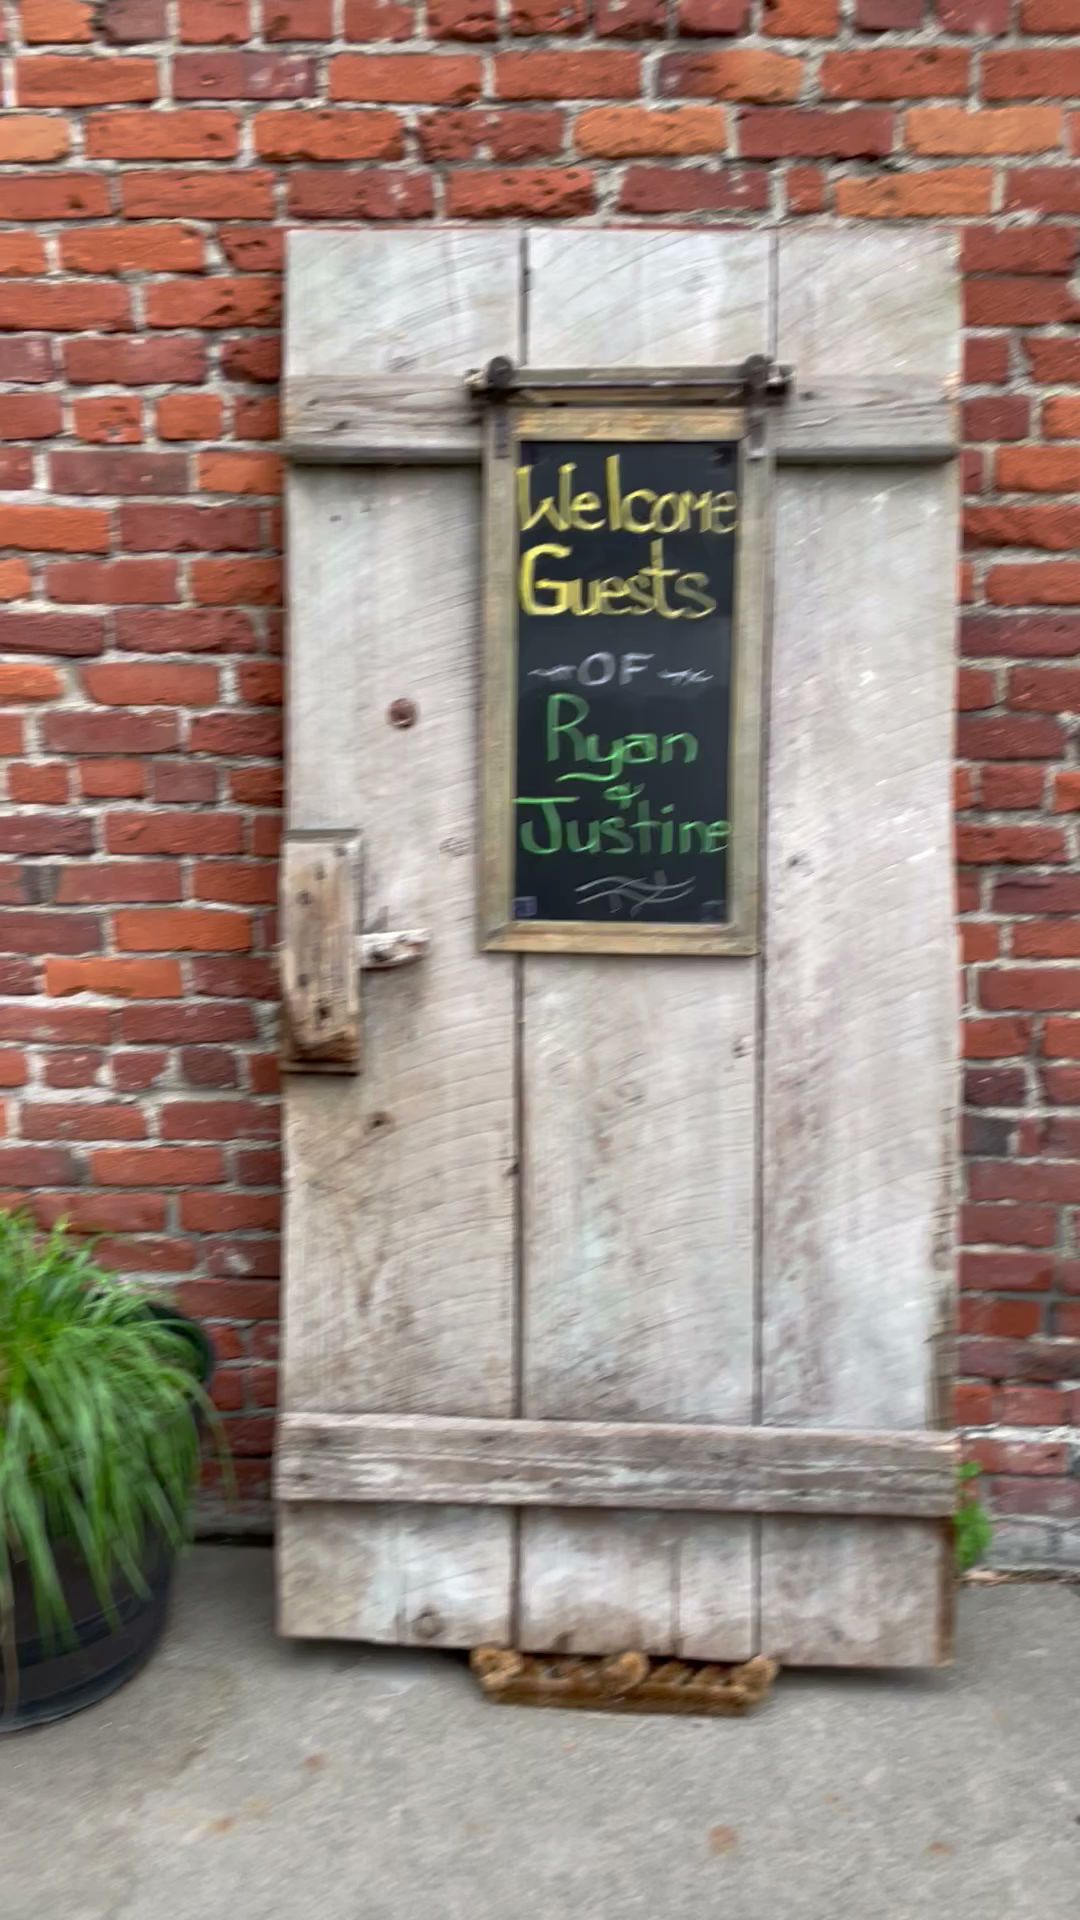 Welcome
Guests
OF
Ryan
&
Justine